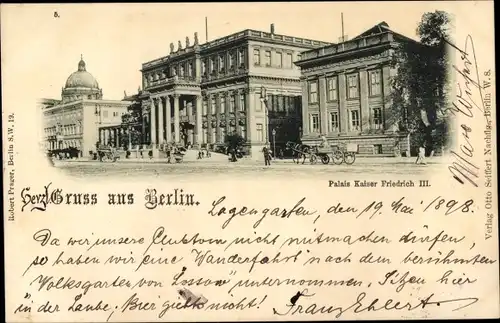 8.
Palais Kaiser Friedrich III.
Gruss aus Berlin.
den 19. Mai 1898.
Da wir unsere nicht mitmachen dürfen,
so haben wir eine "Wanderfahrt" nach dem berühmten
Volksgarten von unternommen, Sitzen hier
in der Laube, Bier giebts nicht! Franz Ehlert.
Robert Prager, Berlin S.W. 12.
Verlag Otto Seiffert Nachflg., Berlin W. 8.